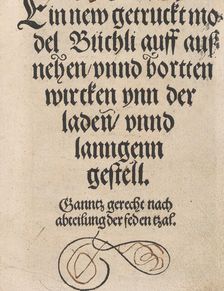 Ein new getruckt mo-
del Büchli auff auß-
nehen/ vnnd bortten
wircken ynn der
laden/ vnnd
lanngenn
gestell.
Ganntz gerecht nach
abteilung der feden tzal.